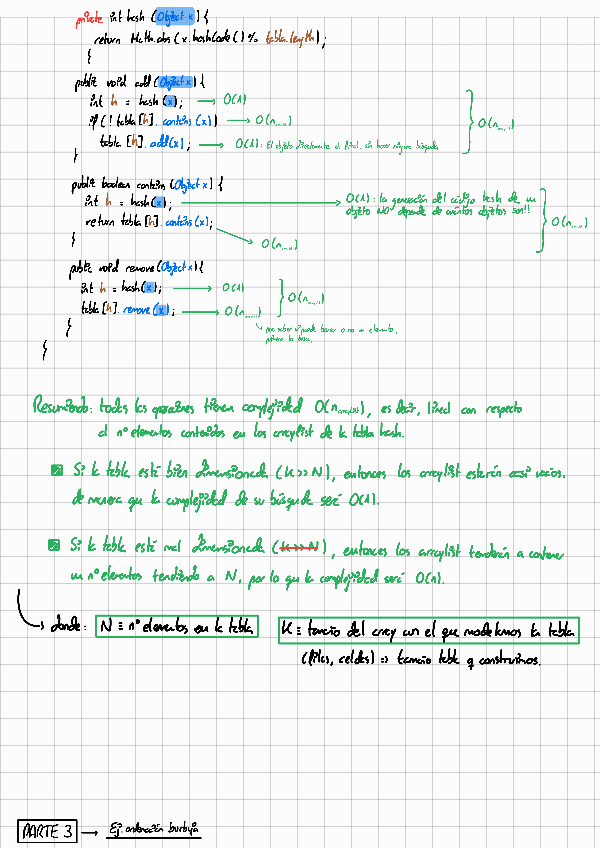 private int hash (Object x) {
return Math.abs (x.hashCode () % tabla.length);
}
public void add (Object x) {
int h = hash (x); → O(1)
if (! tabla [h]. contains (x)) → O(n
tabla [h]. add(x); → O(1): El objeto directamente al final, sin hacer ninguna búsqueda
}
public boolean contains (Object x) {
int h = hash(x); → O(1): la generación del código hash de un
objeto NO depende de cuántos objetos son!!
return tabla [h]. contains (x);
}
public void remove (Object x) {
int h = hash(x); → O(1)
tabla [h]. remove (x); → O(n
para saber si puede borrar o no un elemento,
primero lo busca.
}
}
Resumiendo: todas las operaciones tienen complejidad O(n arraylist), es decir, lineal con respecto
al nº elementos contenidos en los arraylist de la tabla hash.
Si la tabla está bien dimensionada (K >> N), entonces los arraylist estarán casi vacíos.
de manera que la complejidad de su búsqueda será O(1).
Si la tabla está mal dimensionada (K >> N), entonces los arraylist tenderán a contener
un nº elementos tendiendo a N, por lo que la complejidad será O(n).
→ donde: N ≡ nº elementos en la tabla K ≡ tamaño del array con el que modelamos la tabla
(filas, celdas) => tamaño tabla q construimos.
PARTE 3 → Ej. ordenación burbuja